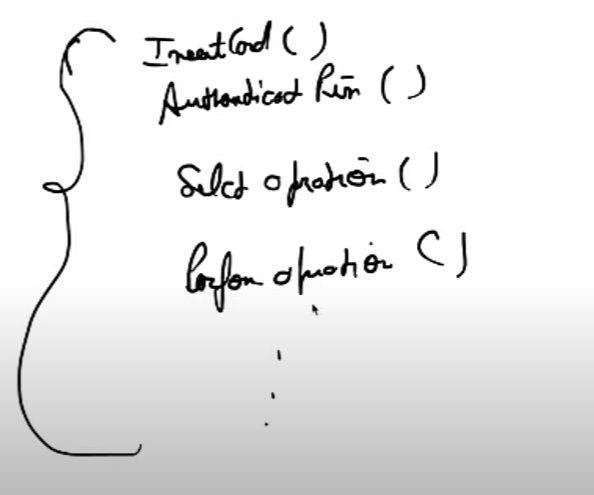 InsertCard ()
Authendicad Pin ()
Selct opration ()
Perfom opration ()